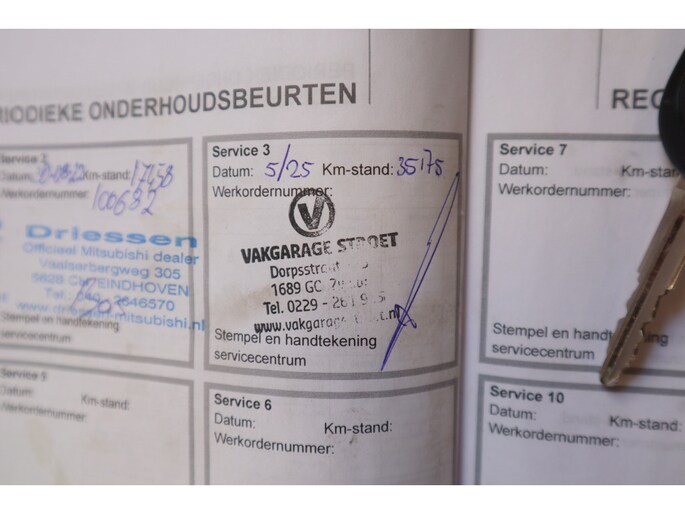 RIODIEKE ONDERHOUDSBEURTEN
REG
Service 2
Datum: Km-stand: 17658
Werkordernummer: 100682
Driessen
Officieel Mitsubishi dealer
Vaalserbergweg 305
5628 CH EINDHOVEN
Tel. 2646570
www.driessen-mitsubishi.nl
Stempel en handtekening
servicecentrum
Service 3
Datum: 5/25 Km-stand: 35175
Werkordernummer:
VAKGARAGE STROET
Dorpsstraat
1689 GG
Tel. 0229 - 261
www.vakgarage
Stempel en handtekening
servicecentrum
Service 7
Datum: Km-stand:
Werkordernummer:
Stempel en handte
servicecentrum
Service 5
Datum: Km-stand:
Werkordernummer:
Service 6
Datum: Km-stand:
Werkordernummer:
Service 10
Datum: Km-stand:
Werkordernummer: